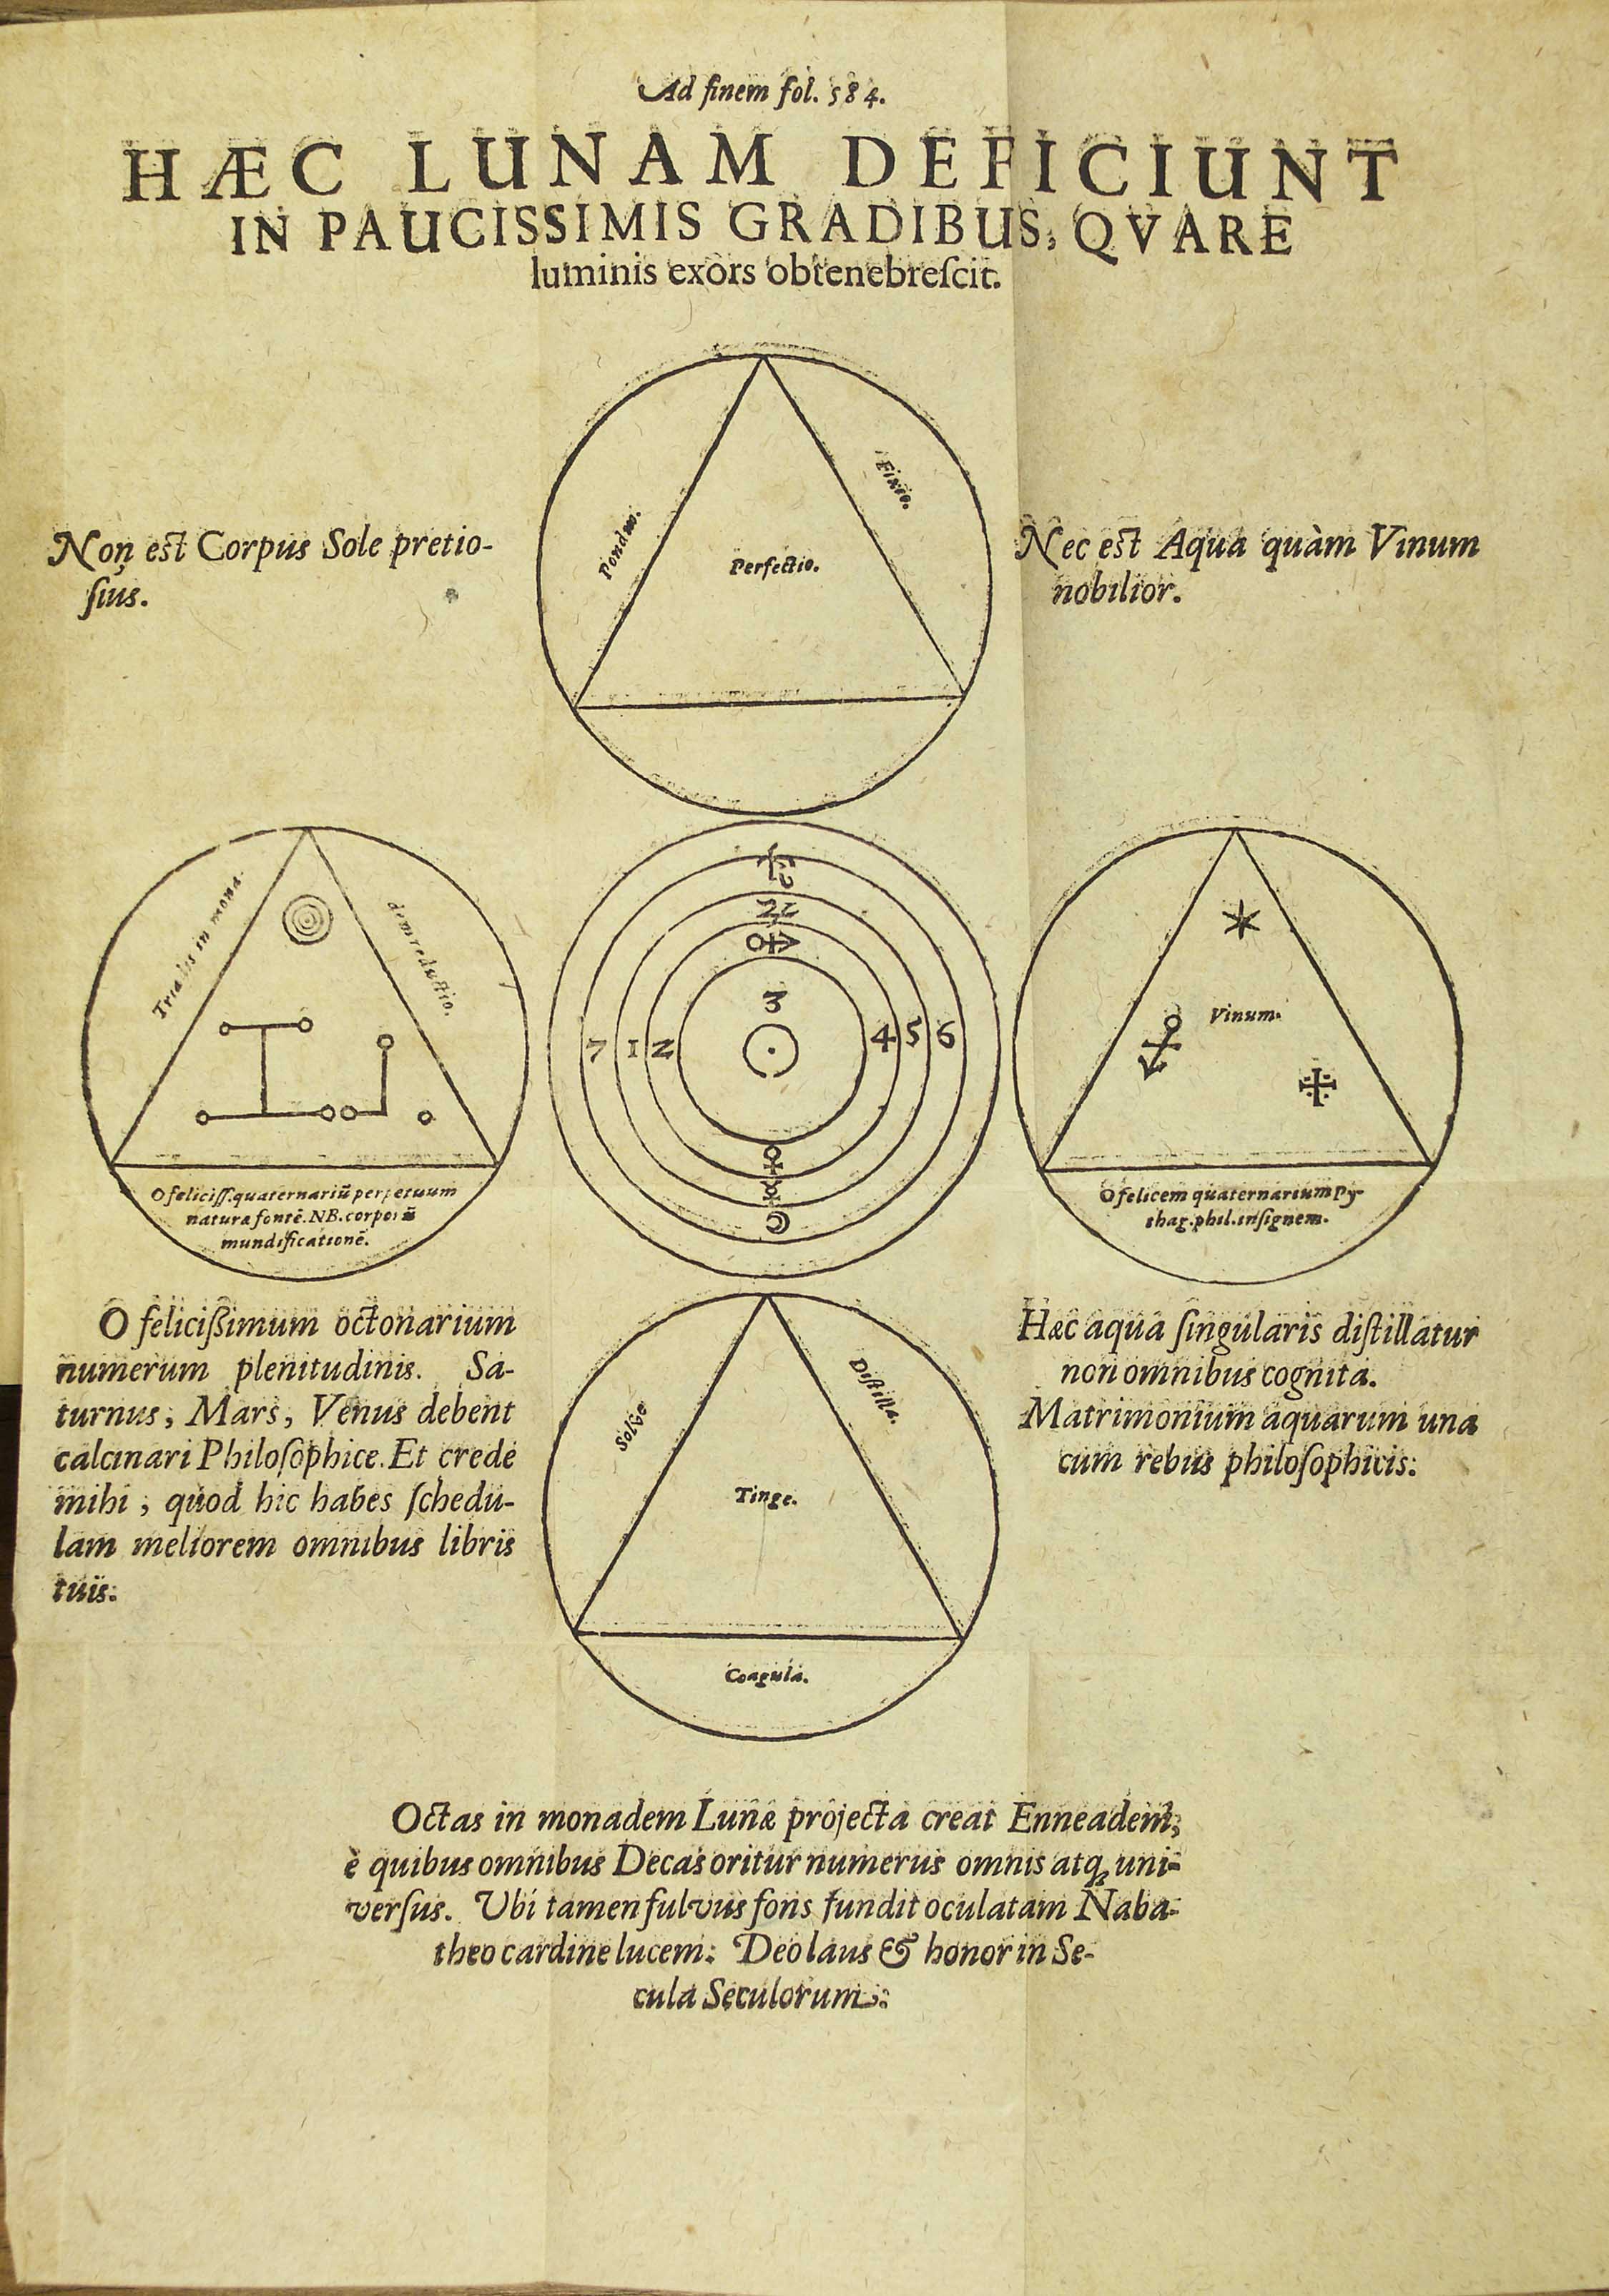 Ad finem fol. 584.
HÆC LUNAM DEFICIUNT
IN PAUCISSIMIS GRADIBUS, QVARE
luminis exors obtenebreſcit.
Pondus.
Fixio.
Perfectio.
Non est Corpus Sole pretio-
ſius.
Nec est Aqua quàm Vinum
nobilior.
Trialis in mona-
dem reductio.
O feliciſſ. quaternariū perpetuum
natura fontē. NB. corporū
mundificationē.
3
7 1 2 4 5 6
Vinum.
O felicem quaternarium Py-
thag. phil. inſignem.
O feliciſsimum octonarium
numerum plenitudinis. Sa-
turnus, Mars, Venus debent
calcinari Philoſophice. Et crede
mihi, quod hic habes ſchedu-
lam meliorem omnibus libris
tuis:
Hæc aqua ſingularis diſtillatur
non omnibus cognita.
Matrimonium aquarum una
cum rebus philoſophicis:
Solve
Diſtilla.
Tinge.
Coagula.
Octas in monadem Lunæ projecta creat Enneadem,
è quibus omnibus Decas oritur numerus omnis atq; uni-
verſus. Ubi tamen fulvus fons fundit oculatam Naba-
theo cardine lucem: Deo laus & honor in Se-
cula Seculorum: